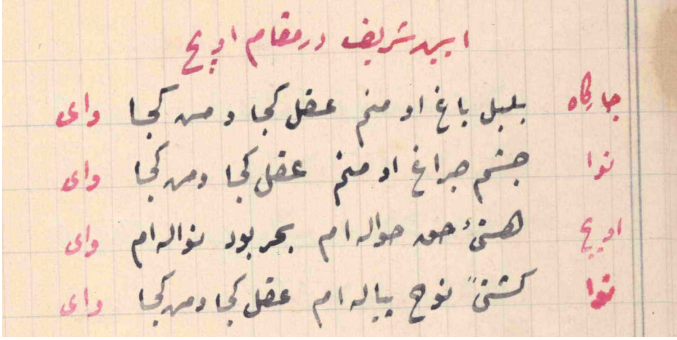 آیین شریف در مقام اویج
چارگاه بلبل باغ او منم عقل کجا و من کجا وای
نوا چشم چراغ او منم عقل کجا و من کجا وای
اویج هستئ حق حواله ام بحر بود نواله ام وای
نوا کشتئ نوح پیاله ام عقل کجا و من کجا وای